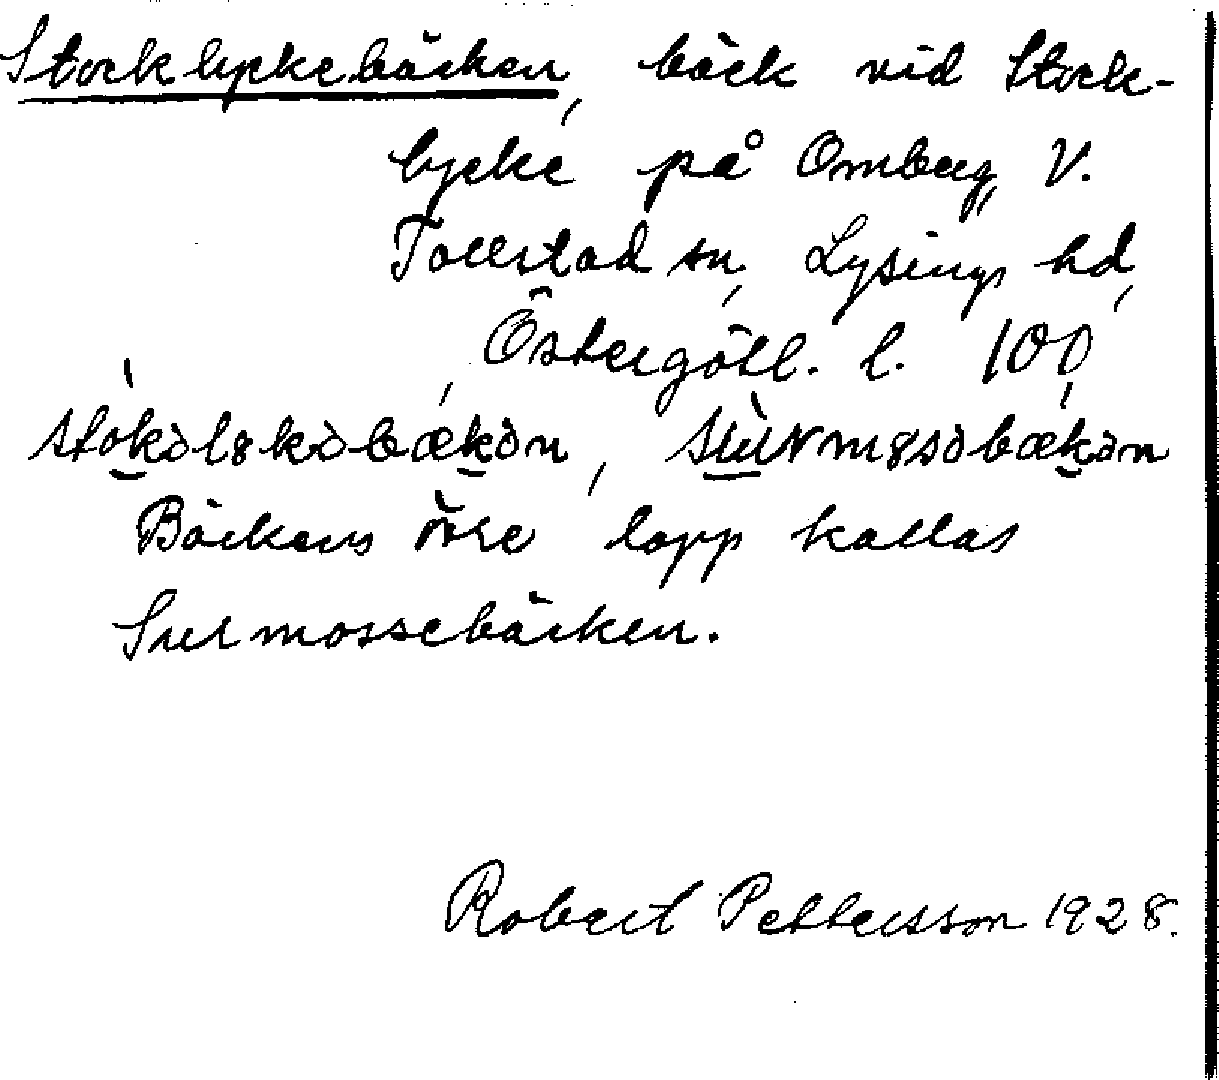 Stocklyckebäcken, bäck vid Stock-
lycke på Omberg, V.
Tollstad sn, Lysings hd,
Östergötl. l. 100,
Bäckens övre lopp kallas
Surmossebäcken.
Robert Pettersson 1928.